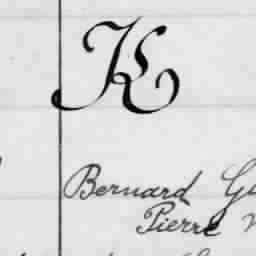 K
Bernard
Pierre